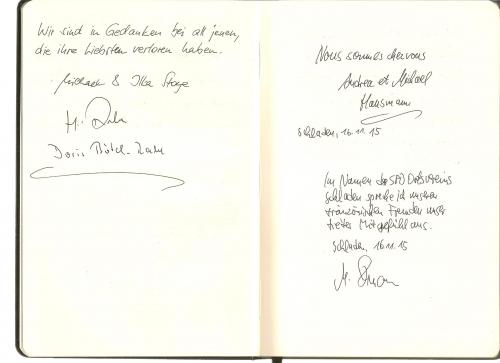 Wir sind in Gedanken bei all jenen,
die ihre Liebsten verloren haben.
Michael & Ilka Stoye
Doris
Nous sommes chervous
Andrea et Mikael
Hausmann
Schladen, 16.11.15
Im Namen des SPD Ortsvereins
Schladen spreche ich unseren
französischen Freunden unser
tiefes Mitgefühl aus.
Schladen, 16.11.15
M.